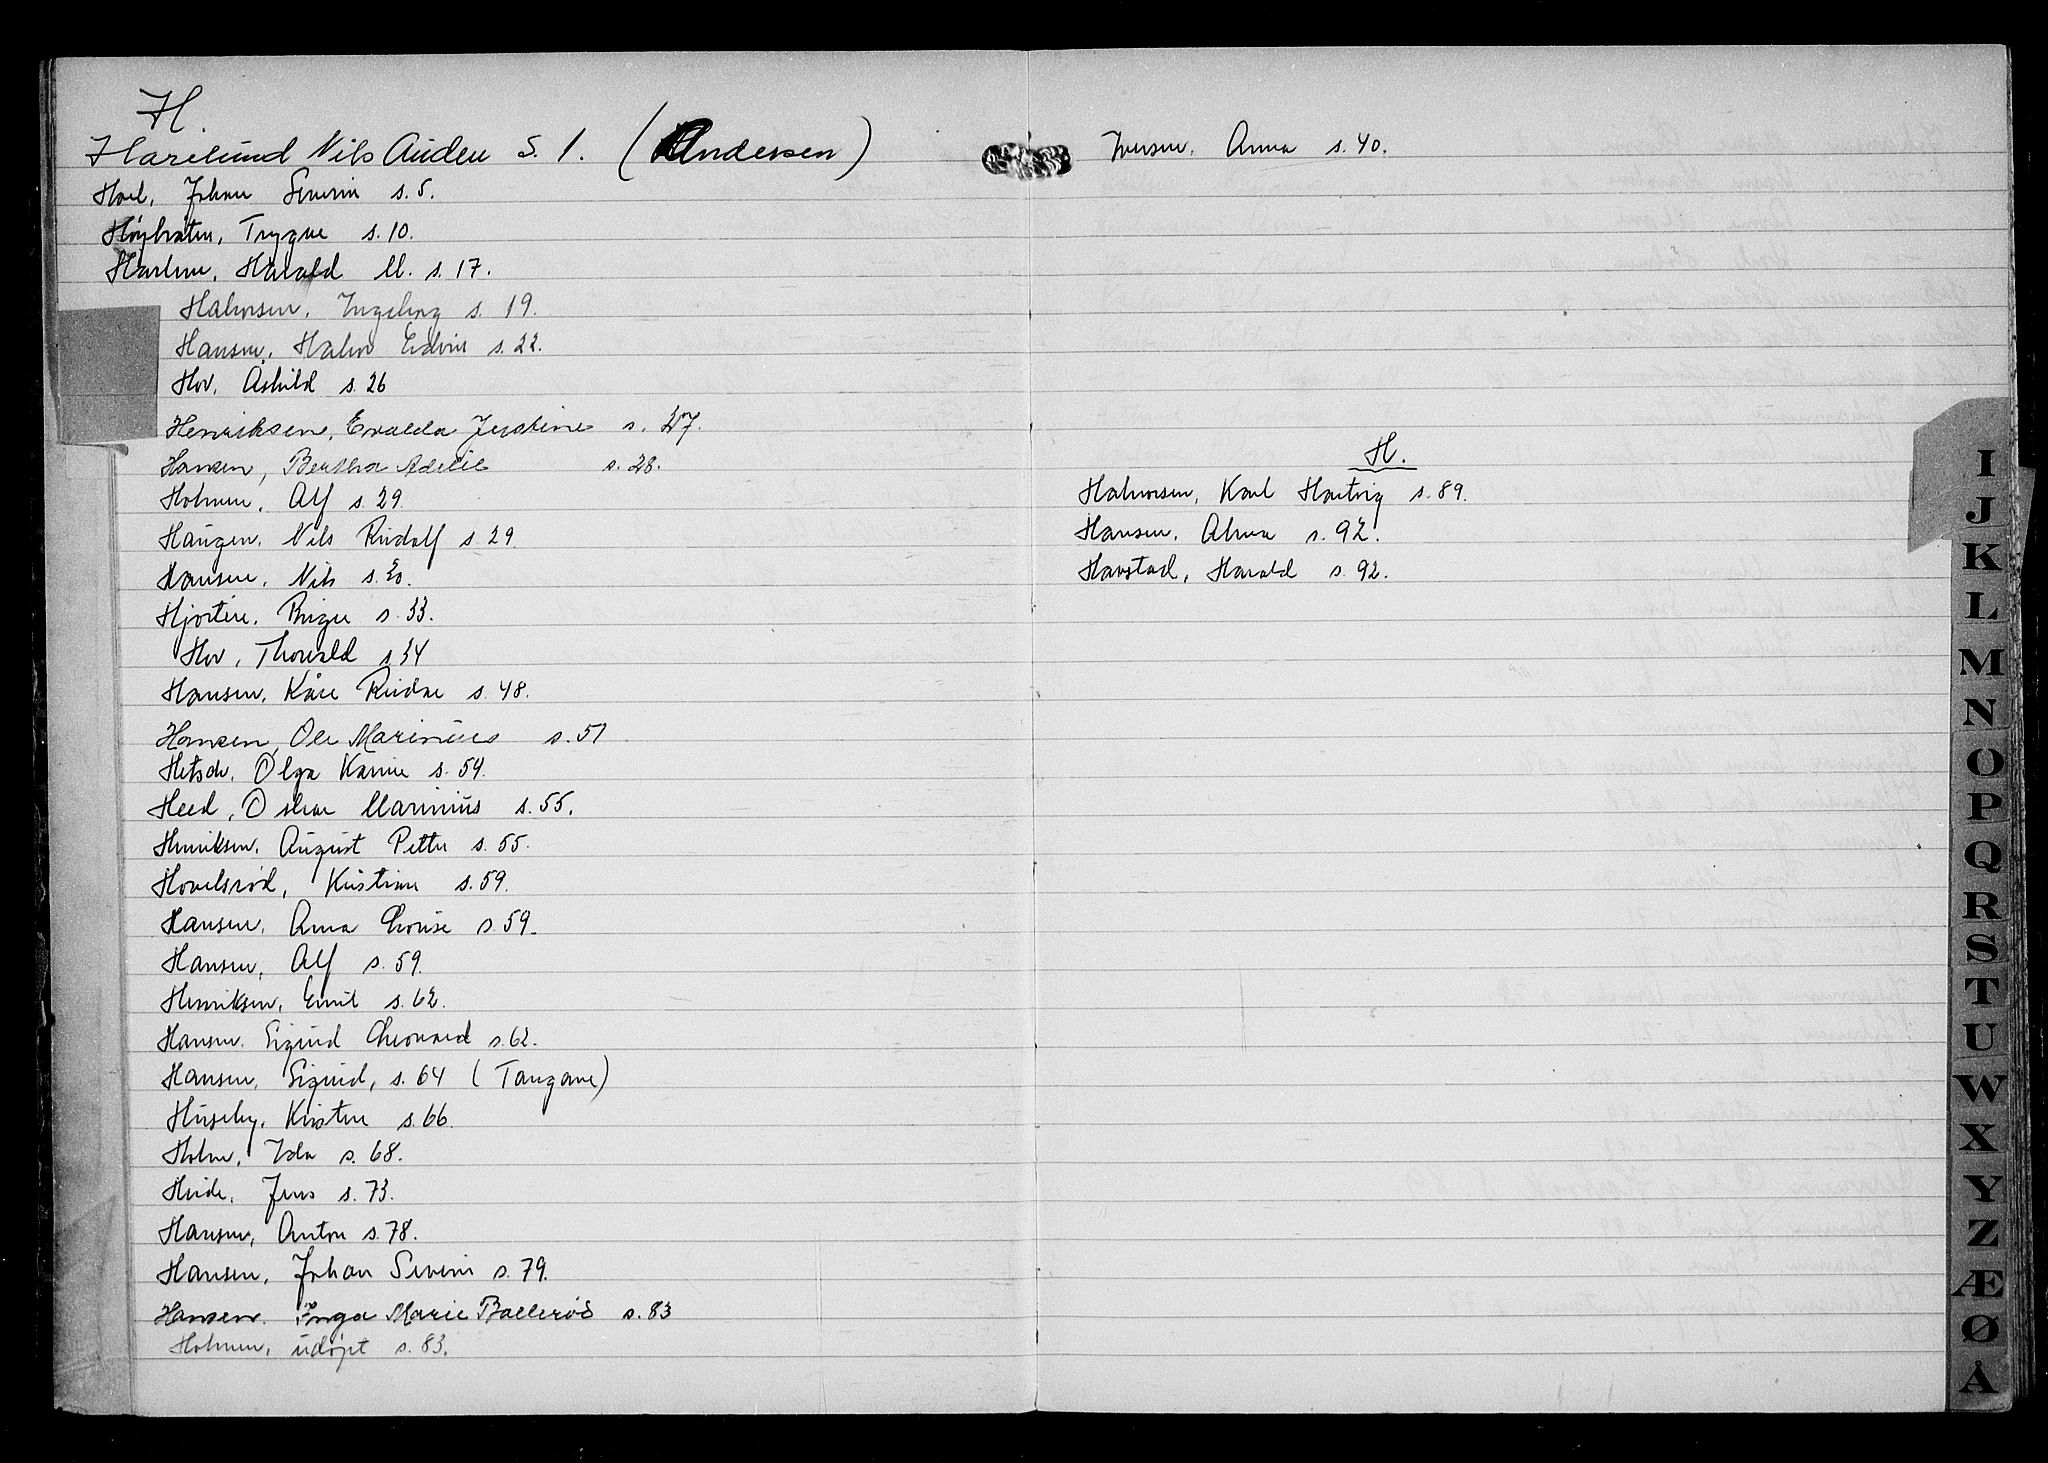 H.
Harelund Nils Auden S. 1. (Andersen)
Hoel, Johan Severin s. 5.
Høybråten, Trygve s. 10.
Harald M. s. 17.
Halvorsen, Ingeborg s. 19.
Hansen, Halvor Edvin s. 22.
Hov, Åshild s. 26
Henriksen, Evalda Justine s. 27.
Hansen, Bertha Adelie s. 28.
Holmen, Alf s. 29.
Haugen, Nils Rudolf s. 29.
Hansen, Nils s. 30.
Hjorten, Birger s. 33.
Hov, Thorvald s 34
Hansen, Kåre Reidar s. 48.
Hansen, Ole Marinius s. 51
Hetsch, Olga Karine s. 54.
Heed, Oskar Marinius s. 55.
Henriksen, August Petter s. 55.
Hovelsrød, Kristian s. 59.
Hansen, Anna Lovise s. 59.
Hansen, Alf s. 59.
Henriksen, Emil s. 62.
Hansen. Sigurd Leonard s. 62.
Hansen, Sigurd, s. 64 (Tangane)
Huseby, Kirsten s. 66.
Holm, Ida s. 68.
Heide, Jens s. 73.
Hansen, Anton s. 78.
Hansen, Johan Severin s. 79.
Hansen. Inga Marie Ballerød s. 83
Holmen, udøpt s. 83.
Iversen, Anna s. 40.
H.
Halvorsen, Karl Hartvig s. 89.
Hansen, Alma s. 92.
Havstad, Harald s. 92.
I
J
K
L
M
N
O
P
Q
R
S
T
U
W
X
Y
Z
Æ
Ø
Å